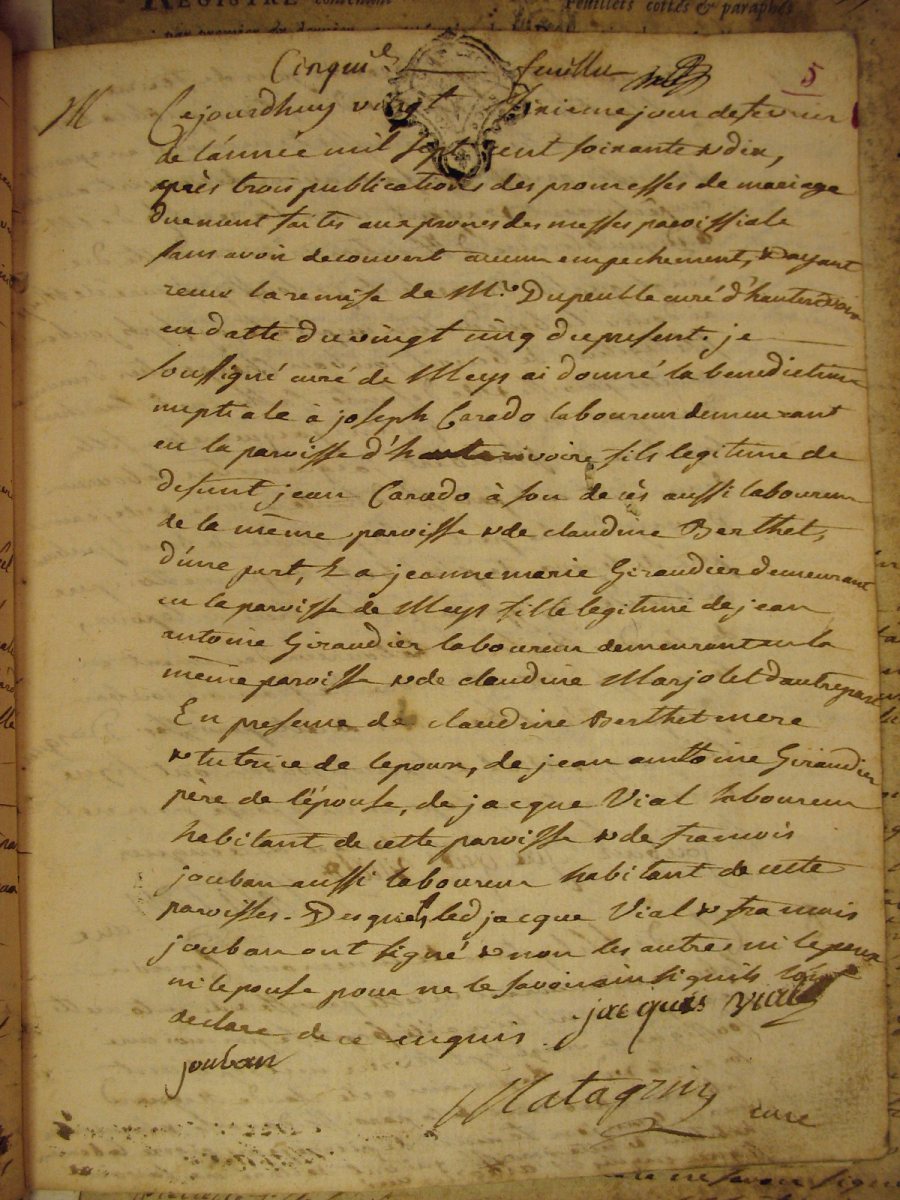 REGISTRE contenant Feuillets cottés & paraphés
Cinqui.e feuillet
5
M Cejourdhuy vingt sixieme jour de fevrier
de l'année mil sept cent soixante & dix,
après trois publications des promesses de mariage
duement faites aux prones des messes paroissiale
sans avoir decouvert aucun empechement, & ayant
reçu la remise de Mr. Dupeuble curé d'hauterivoire
en datte du vingt cinq du present. je
soussigné curé de Meys ai donné la benediction
nuptiale à joseph Carado laboureur demeurant
en la paroisse d'hauterivoire fils legitime de
defunt jean Carado à son decès aussi laboureur
de la même paroisse & de claudine Berthet,
d'une part, & a jeanne marie Giraudier demeurant
en la paroisse de Meys fille legitime de jean
antoine Giraudier laboureur demeurant en la
même paroisse & de claudine Marjolet d'autre part
En presence de claudine Berthet mere
& tutrice de lepoux, de jean antoine Giraudier
père de l'épouse, de jacque Vial laboureur
habitant de cette paroisse & de francois
jouban aussi laboureur habitant de cette
paroisse. Desquels led jacque Vial & francois
jouban ont signé & non les autres ni lepoux
ni lepouse pour ne le savoir ainsi quils lont
declare de ce enquis. jacques vial
jouban
Matagrin
curé